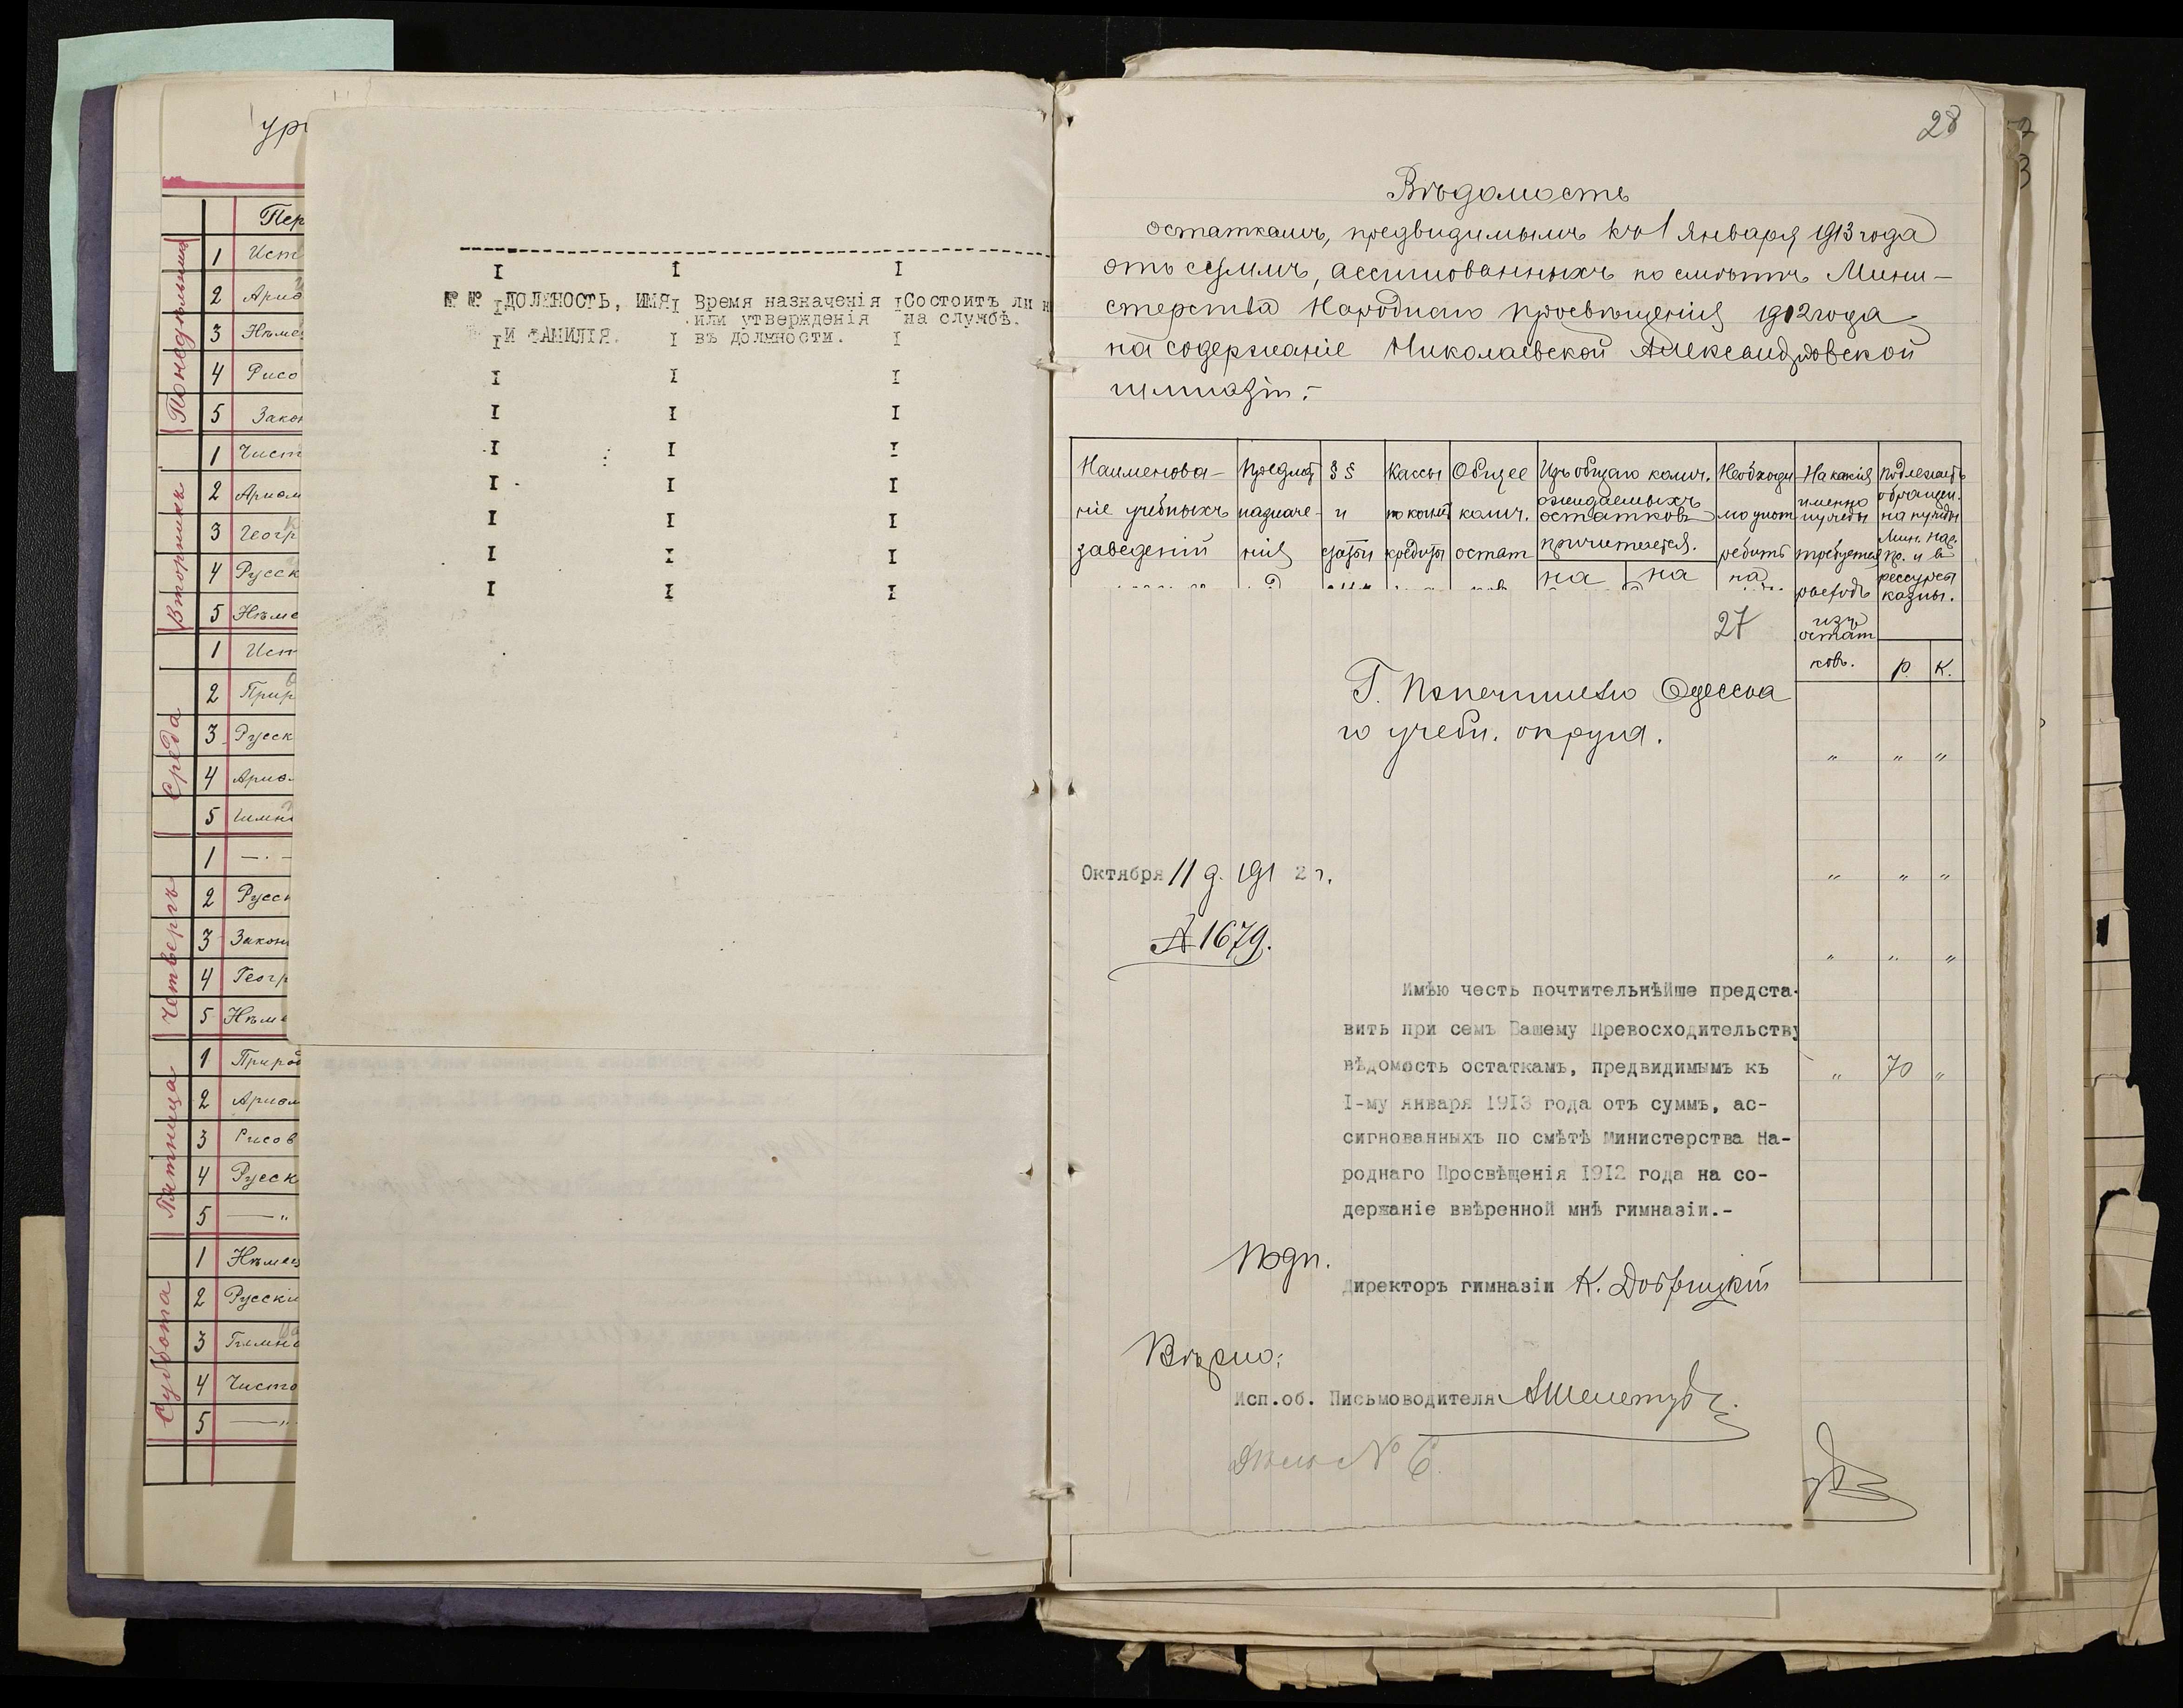 Понедѣльникъ
1
2
3
4
5
Вторникъ
1
2
3
4
5
Среда
1
2
3
4
5
Четвергъ
1
2
3
4
5
Пятница
1
2
3
4
5
Суббота
1
2
3
4
5
№ № ДОЛЖНОСТЬ, ИМЯ
И ФАМИЛІЯ.
Время назначенія
или утвержденія
въ должности.
Состоитъ ли
на службѣ.
28
Вѣдомость
остаткамъ, предвидимымъ къ 1 января 1913 года
отъ суммъ, ассигнованныхъ по смѣтѣ Мини-
стерства Народнаго Просвѣщенія 1912 года
на содержаніе Николаевской Александровской
гимназіи.-
Наименова-
ніе учебныхъ
заведеній
Предметъ
назначе-
нія
§ §
и
статьи
Кассы
кредиты
Общее
колич.
остат
Изъ общаго колич.
ожидаемыхъ
остатковъ
причитается.
на
на
Необходи
мо
на
На какія
именно
нужды
требуется
расходъ
изъ
остат
ковъ.
Подлежитъ
обращен.
на нужды
Мин. Нар.
Пр. и въ
рессурсы
казны.
р. к.
" " "
" " "
" " "
" 70 "
27
Г. Попечителю Одесска
го учебн. округа.
Октября 11 д. 1912 г.
№ 1679.
Имѣю честь почтительнѣйше предста-
вить при семъ Вашему Превосходительству
вѣдомость остаткамъ, предвидимымъ къ
I-му января 1913 года отъ суммъ, ас-
сигнованныхъ по смѣтѣ Министерства На-
роднаго Просвѣщенія 1912 года на со-
держаніе ввѣренной мнѣ гимназіи.-
Подп.
Директоръ гимназіи К.
Вѣрно:
Исп.об. Письмоводителя
Дѣло № 6